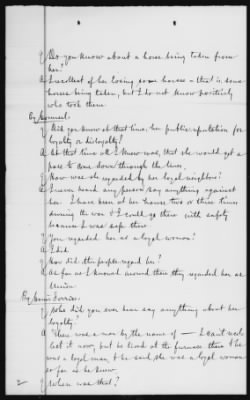 Q Do you know about a horse being taken from
her?
A I recollect of her losing some horses – that is some
horses being taken, but I do not know positively
who took them
By Counsel:
Q Did you know at that time, her public reputation for
loyalty or disloyalty?
A At that time all I knew was, that she would get a
pass to come down through the lines,
Q How was she regarded by her loyal neighbors?
A I never heard any person say anything against
her. I have been at her house two or three times
during the war & I could go there with safety
because I was safe there
Q You regarded her as a loyal woman?
A I did.
Q How did the people regard her?
A As far as I knowed around there they regarded her as
Union.
Q Who did you ever hear say anything about her
loyalty?
A There was a man by the name of — I can't recol
lect it now, but he lived at the furnace there & he
was a loyal man, & he said she was a loyal woman
so far as he knew.
Q When was that?
2